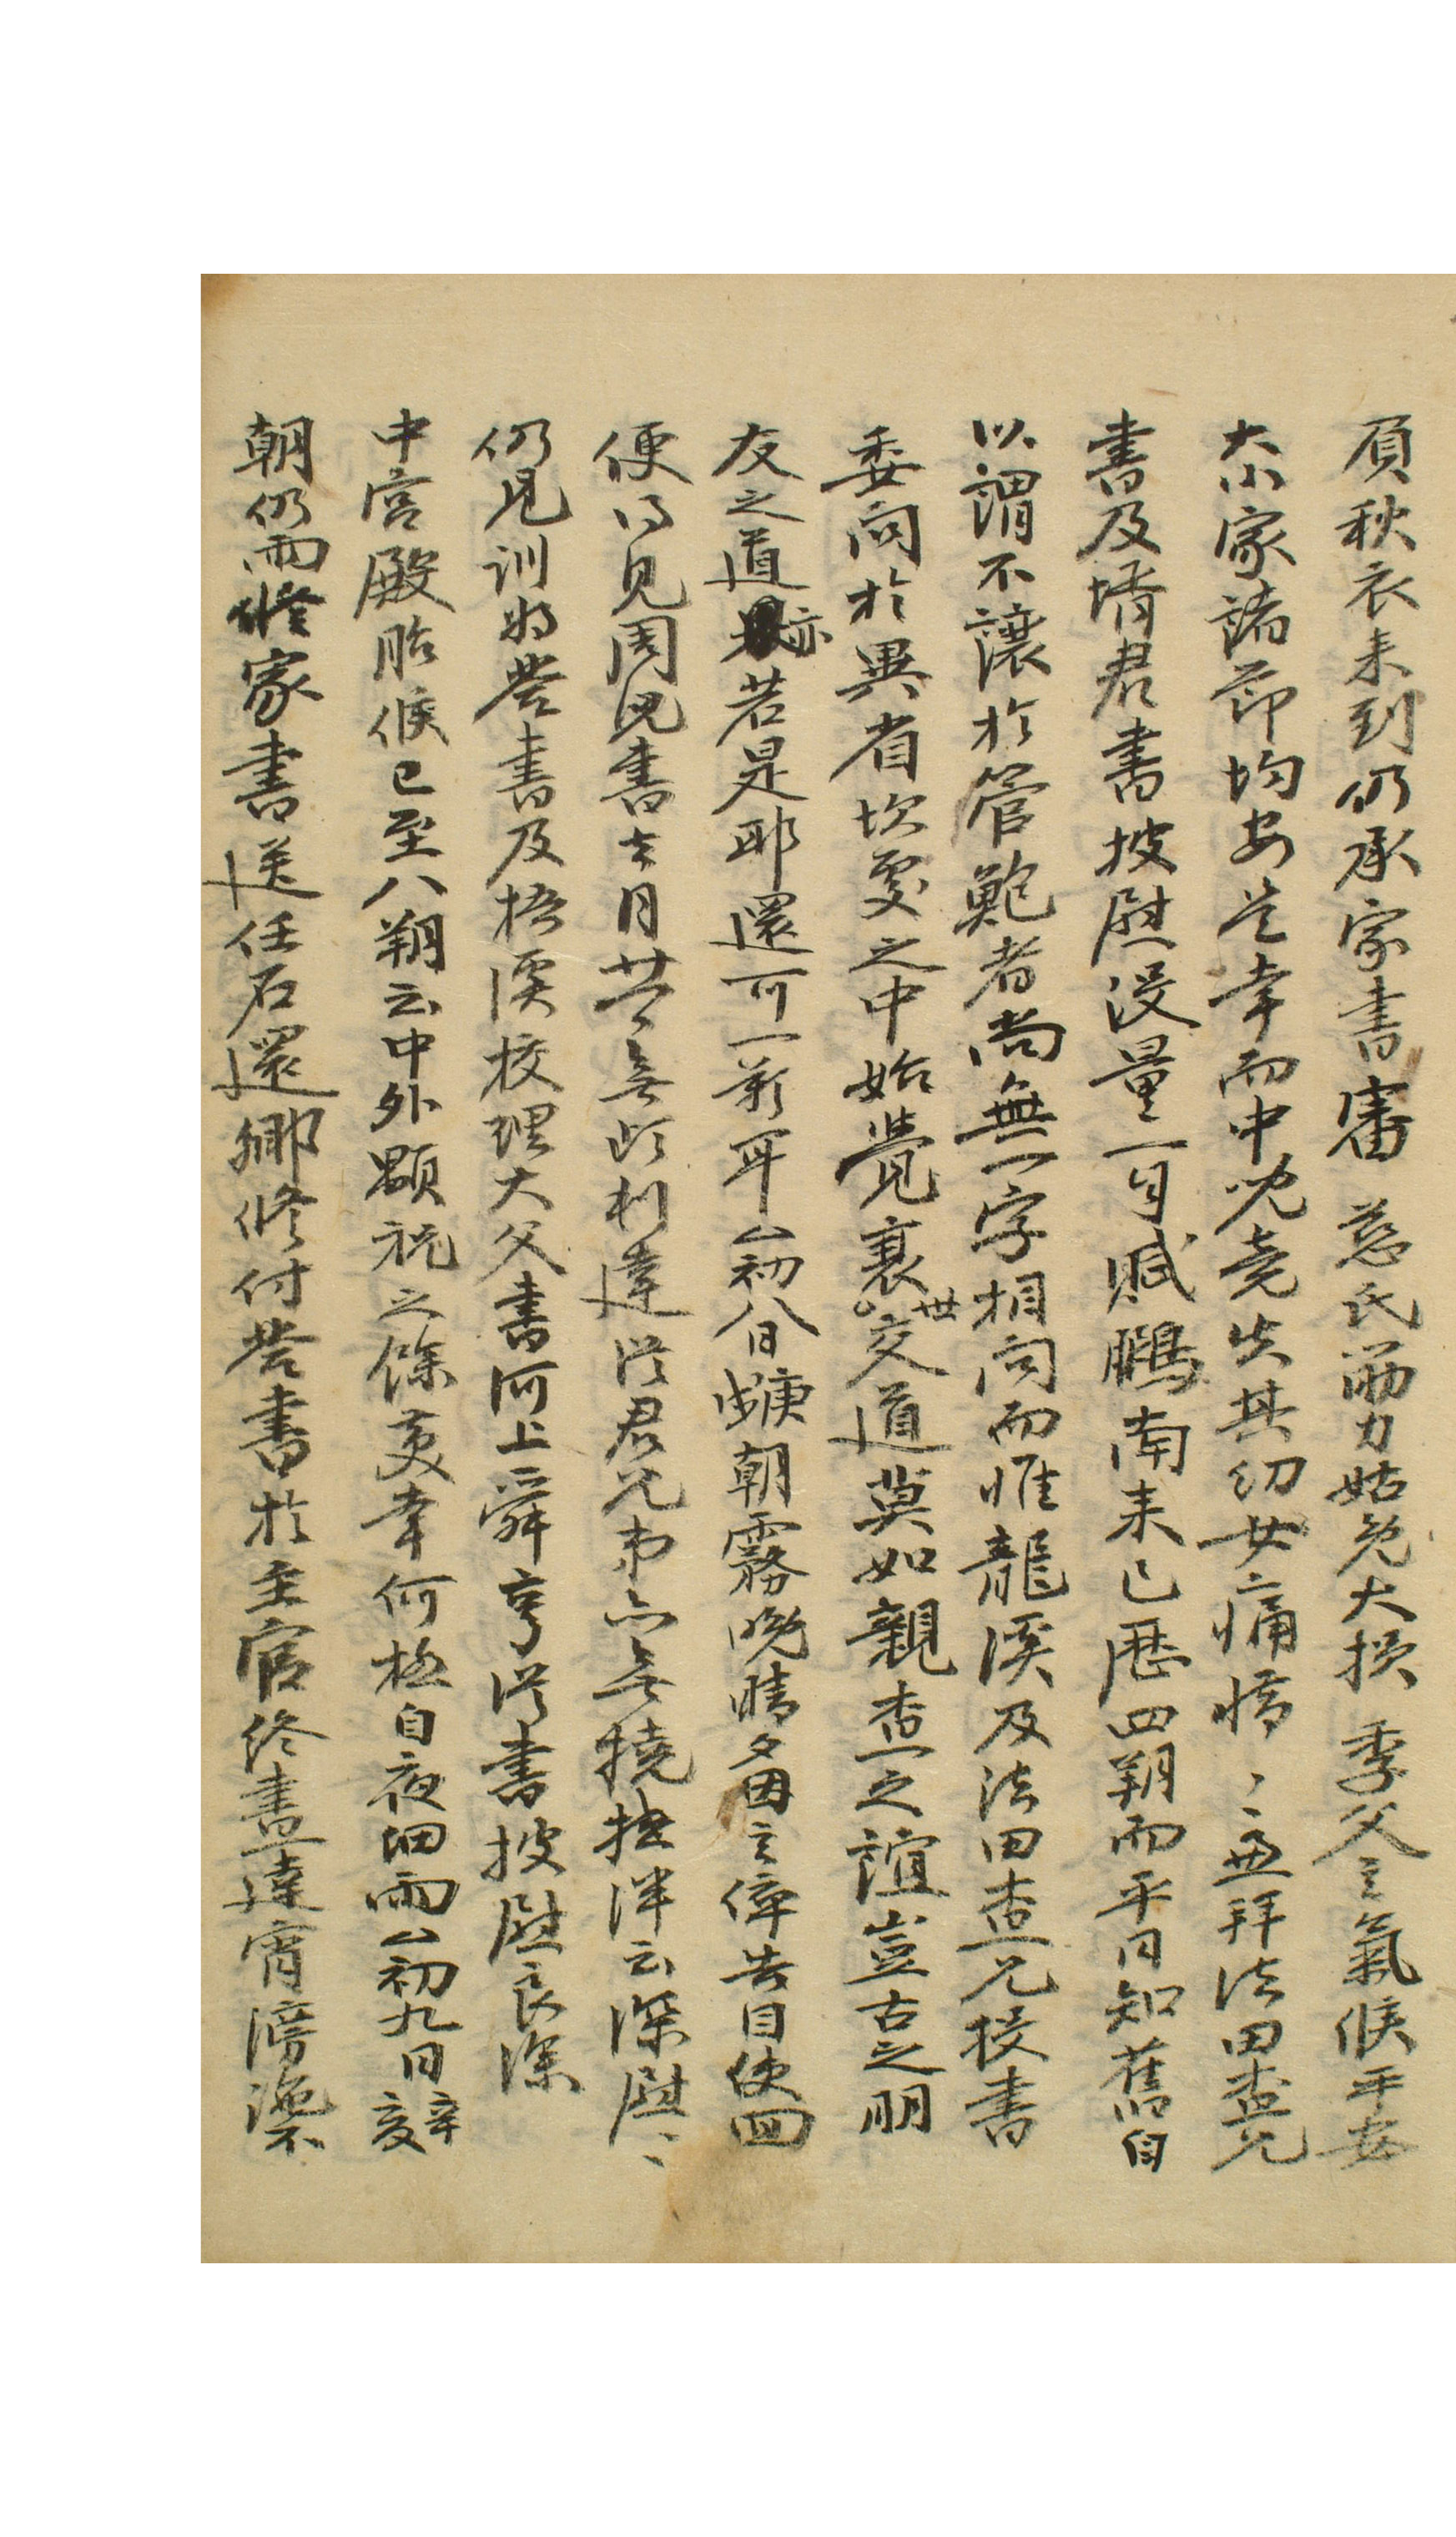 負秋衣来到仍承家書審 慈氏筋力姑免大損 季父主氣候平安
大小家諸節均安是幸而中兒竟失其幼女痛悋〻兼拜法田査兄
書及壻君書披慰沒量一自賦鵬南来已歷四朔而平日知舊自
以謂不讓於管鮑者尚無一字相問而惟龍溪及法田査兄投書
委問於異省坎窞之中始覺衰世交道莫如親査之誼豈古之朋
友之道亦若是耶還可一莞耳 初八日庚朝霧晩晴夕因主倅告目使回
便得見周兒書去月廿 無頉利達從君兄弟亦無撓抵泮云深慰〻
仍見訓將答書及梧溪校理大父書河上舜亨從書披慰良深
中宮殿胎候已至八朔云中外顒祝之餘莫幸何極自夜細雨 初九日辛亥
朝仍雨修家書送任石還鄕修付答書於主官終晝達宵滂沱不